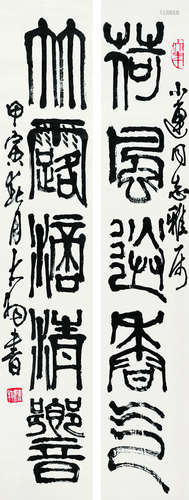 小蓮同志雅属
荷風送香气
竹露滴清響
甲寅 月大羽書